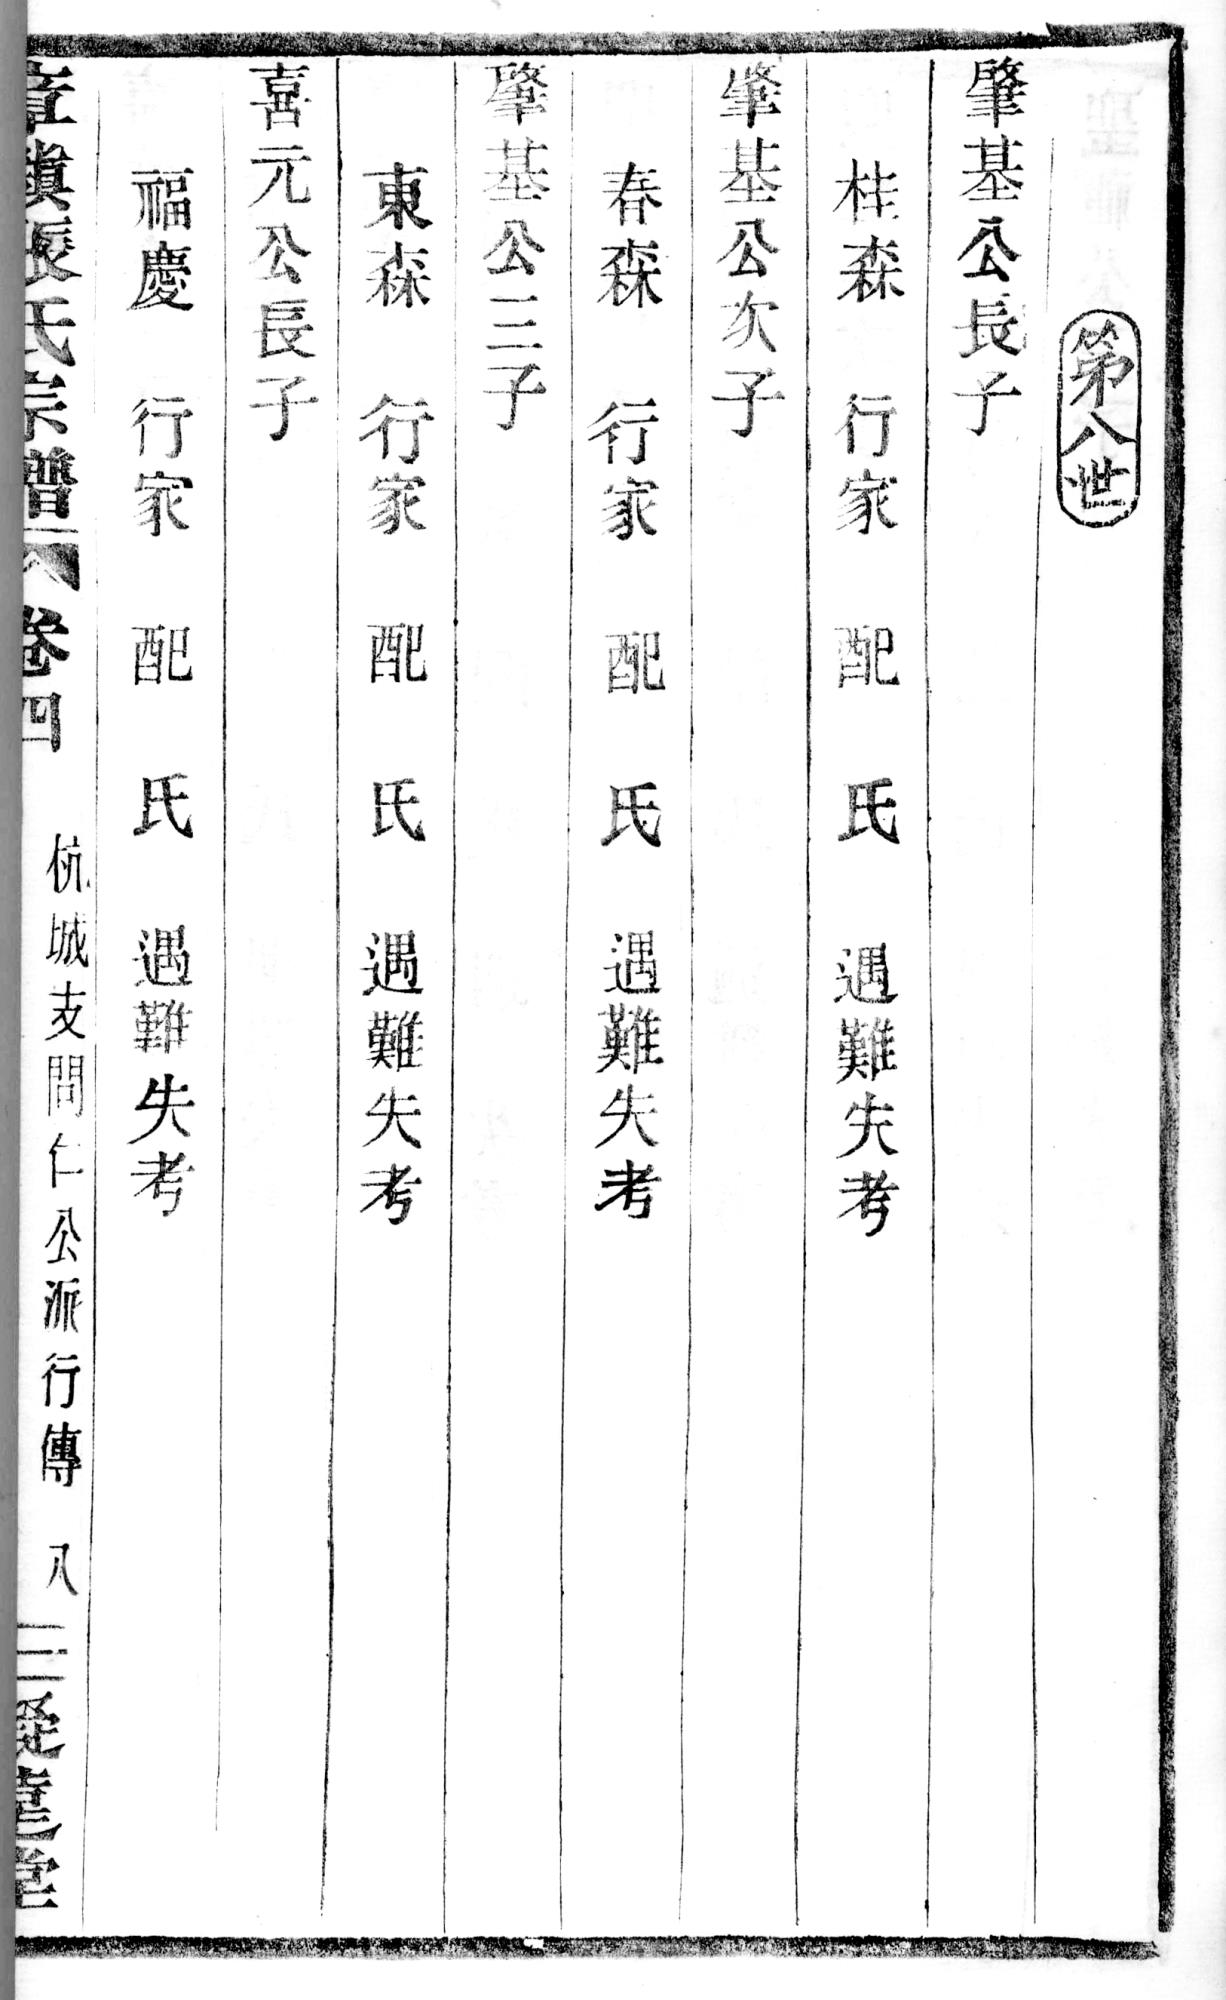 第八世
肇基公長子
桂森 行家 配 氏 遇難失考
肇基公次子
春森 行家 配 氏 遇難失考
肇基公三子
東森 行家 配 氏 遇難失考
喜元公長子
福慶 行家 配 氏 遇難失考
章鎮張氏宗譜 卷四 杭城支問仁公派行傳 八 三 堂